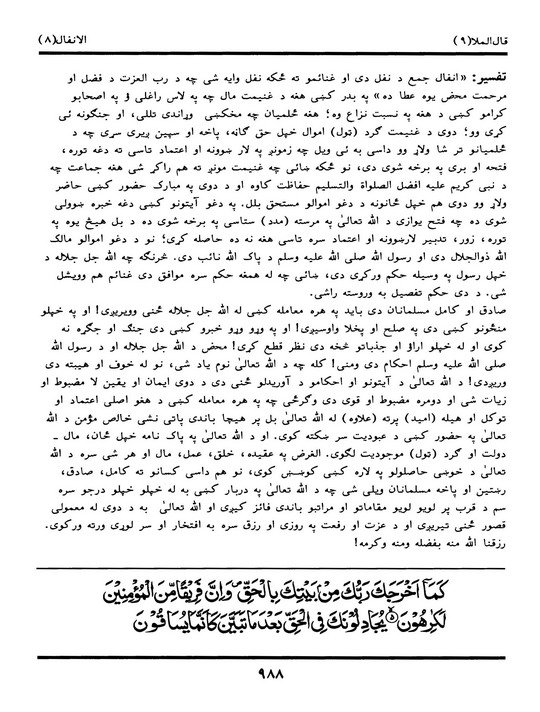 قال الملا(۹) الانفال(۸)
تفسیر: «انفال جمع د نفل دی او غنائمو ته ځکه نفل وایه شی چه د رب العزت د فضل او
مرحمت محض یوه عطا ده» په بدر کښی هغه د غنیمت مال چه په لاس راغلی ؤ په اصحابو
کرامو کښی د هغه په نسبت نزاع وه؛ هغه ځلمیان چه مخکښی وړاندی تللی، او جنګونه ئی
کړی وو؛ دوی د غنیمت ګرد (ټول) اموال خپل حق ګاڼه، پاخه او سپین ږیری سړی چه د
ځلمیانو تر شا ولاړ وو داسی به ئی ویل چه زمونږ په لار ښوونه او اعتماد تاسی ته دغه توره،
فتحه او بری په برخه شوی دی، نو ځکه ښائی چه غنیمت مونږ ته هم راکړ شی هغه جماعت چه
د نبی کریم علیه افضل الصلواة والتسلیم حفاظت کاوه او د دوی په مبارک حضور کښی حاضر
ولاړ وو دوی هم خپل ځانونه د دغو اموالو مستحق بلل. په دغو آیتونو کښی دغه خبره ښوولی
شوی ده چه فتح یوازی د الله تعالیٰ په مرسته (مدد) ستاسی په برخه شوی ده د بل هیڅ یوه په
توره، زور، تدبیر لارښوونه او اعتماد سره تاسی هغه نه ده حاصله کړی؛ نو د دغو اموالو مالک
الله ذوالجلال دی او رسول الله صلی الله علیه وسلم د پاک الله نائب دی. څرنګه چه الله جل جلاله د
خپل رسول په وسیله حکم ورکړی دی، ښائی چه له همغه حکم سره موافق دی غنائم هم وویشل
شی. د دی حکم تفصیل به وروسته راشی.
صادق او کامل مسلمانان دی باید په هره معامله کښی له الله جل جلاله څنی وویریږی! او په خپلو
منځونو کښی دی په صلح او پخلا واوسیږی! او په وړو وړو خبرو کښی دی جنګ او جګړه نه
کوی او له خپلو اراؤ او جذباتو څخه دی نظر قطع کړی! محض د الله جل جلاله او د رسول الله
صلی الله علیه وسلم احکام دی ومنی! کله چه د الله تعالیٰ نوم یاد شی، نو له خوف او هیبته دی
وریږدی! د الله تعالیٰ د آیتونو او احکامو د آوریدلو څنی دی د دوی ایمان او یقین لا مضبوط او
زیات شی او دومره مضبوط او قوی دی وګرځی چه په هره معامله کښی د هغو اصلی اعتماد او
توکل او هیله (امید) پرته (علاوه) له الله تعالیٰ بل پر هیچا باندی پاتی نشی خالص مؤمن د الله
تعالیٰ په حضور کښی د عبودیت سر ښکته کوی. او د الله تعالیٰ په پاک نامه خپل ځان، مال ـ
دولت او ګرد (ټول) موجودیت لګوی. الغرض په عقیده، خلق، عمل، مال او هر شی سره د الله
تعالیٰ د خوښی حاصلولو په لاره کښی کوښښ کوی، نو هم داسی کسانو ته کامل، صادق،
رښتین او پاخه مسلمانان ویلی شی چه د الله تعالیٰ په دربار کښی به له خپلو خپلو درجو سره
سم د قرب پر لویو لویو مقاماتو او مراتبو باندی فائز کیږی او الله تعالیٰ به د دوی له معمولی
قصور څنی تیریږی او د عزت او رفعت په روزی او رزق سره به افتخار او سر لوړی ورته ورکوی.
رزقنا الله منه بفضله ومنه وکرمه!
كَمَآ اَخْرَجَكَ رَبُّكَ مِنْۢ بَيْتِكَ بِالْحَقِّ وَاِنَّ فَرِيْقًا مِّنَ الْمُؤْمِنِيْنَ
لَكٰرِهُوْنَ ۵ يُجَادِلُوْنَكَ فِى الْحَقِّ بَعْدَ مَا تَبَيَّنَ كَاَنَّمَا يُسَاقُوْنَ
۹۸۸